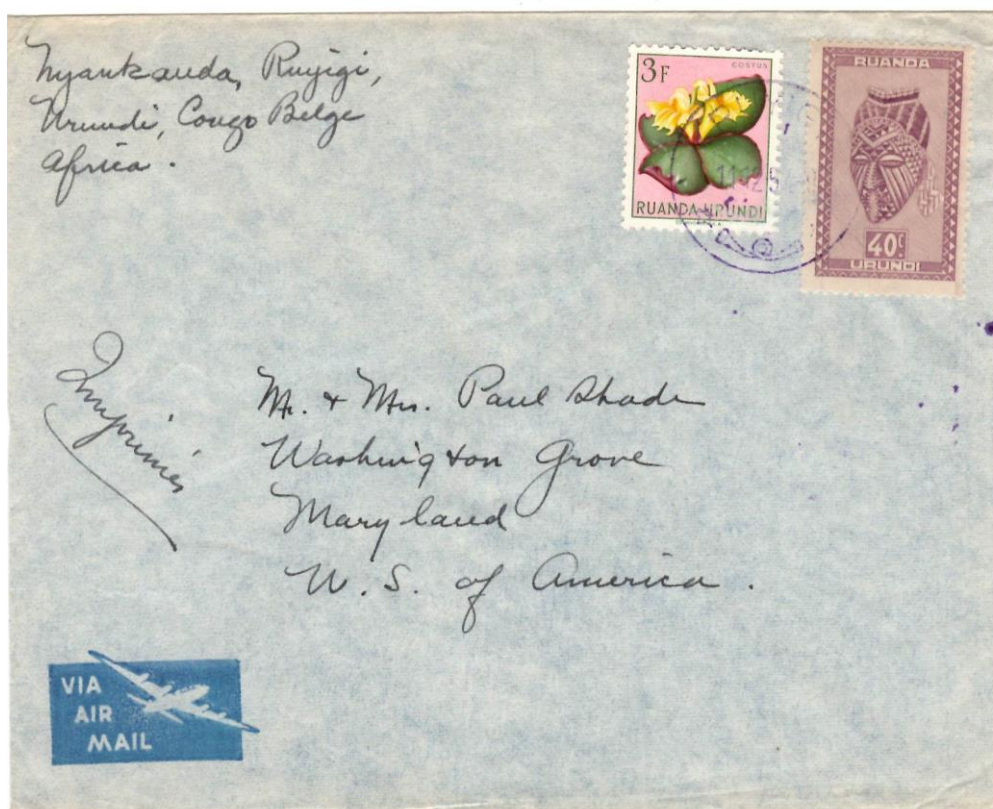 Nyankanda, Ruyigi,
Urundi, Congo Belge
Africa.
3F
COSTUS
RUANDA-URUNDI
RUANDA
40c
URUNDI
Imprimés
Mr. + Mrs. Paul Shade
Washington Grove
Maryland
U. S. of America.
VIA
AIR
MAIL